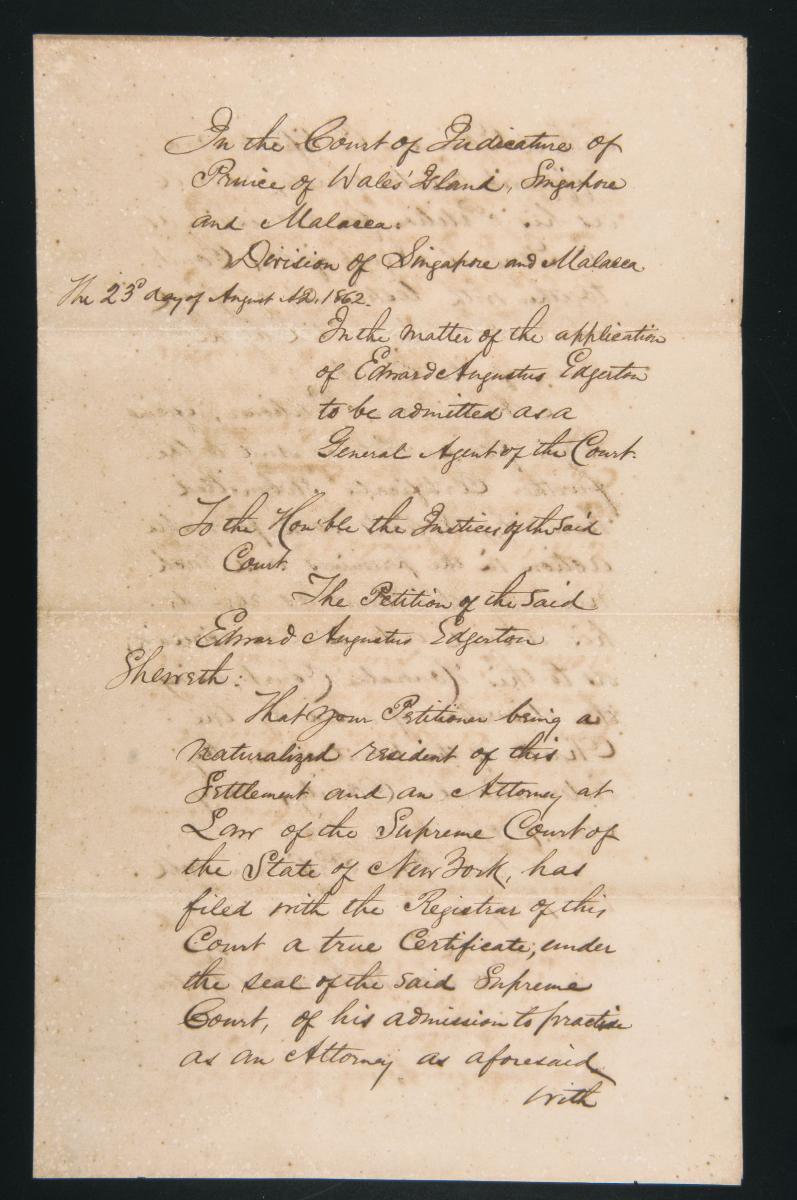 In the Court of Judicature of
Prince of Wales' Island, Singapore
and Malacca.
Division of Singapore and Malacca
The 23d day of August A.D. 1862.
In the matter of the application
of Edward Augustus Edgerton
to be admitted as a
General Agent of the Court.
To the Hon'ble the Justices of the said
Court.
The Petition of the said
Edward Augustus Edgerton
Sheweth:
That your Petitioner being a
naturalized resident of this
Settlement and an Attorney at
Law of the Supreme Court of
the State of New York, has
filed with the Registrar of this
Court a true Certificate, under
the seal of the said Supreme
Court, of his admission to practise
as an Attorney as aforesaid
with